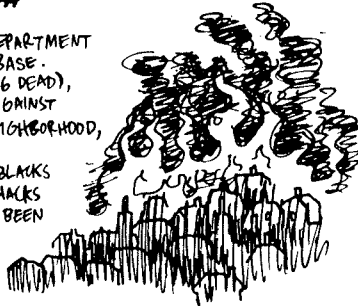 EPARTMENT
BASE.
6 DEAD),
GAINST
IGHBORHOOD,
BLACKS
HACKS
BEEN